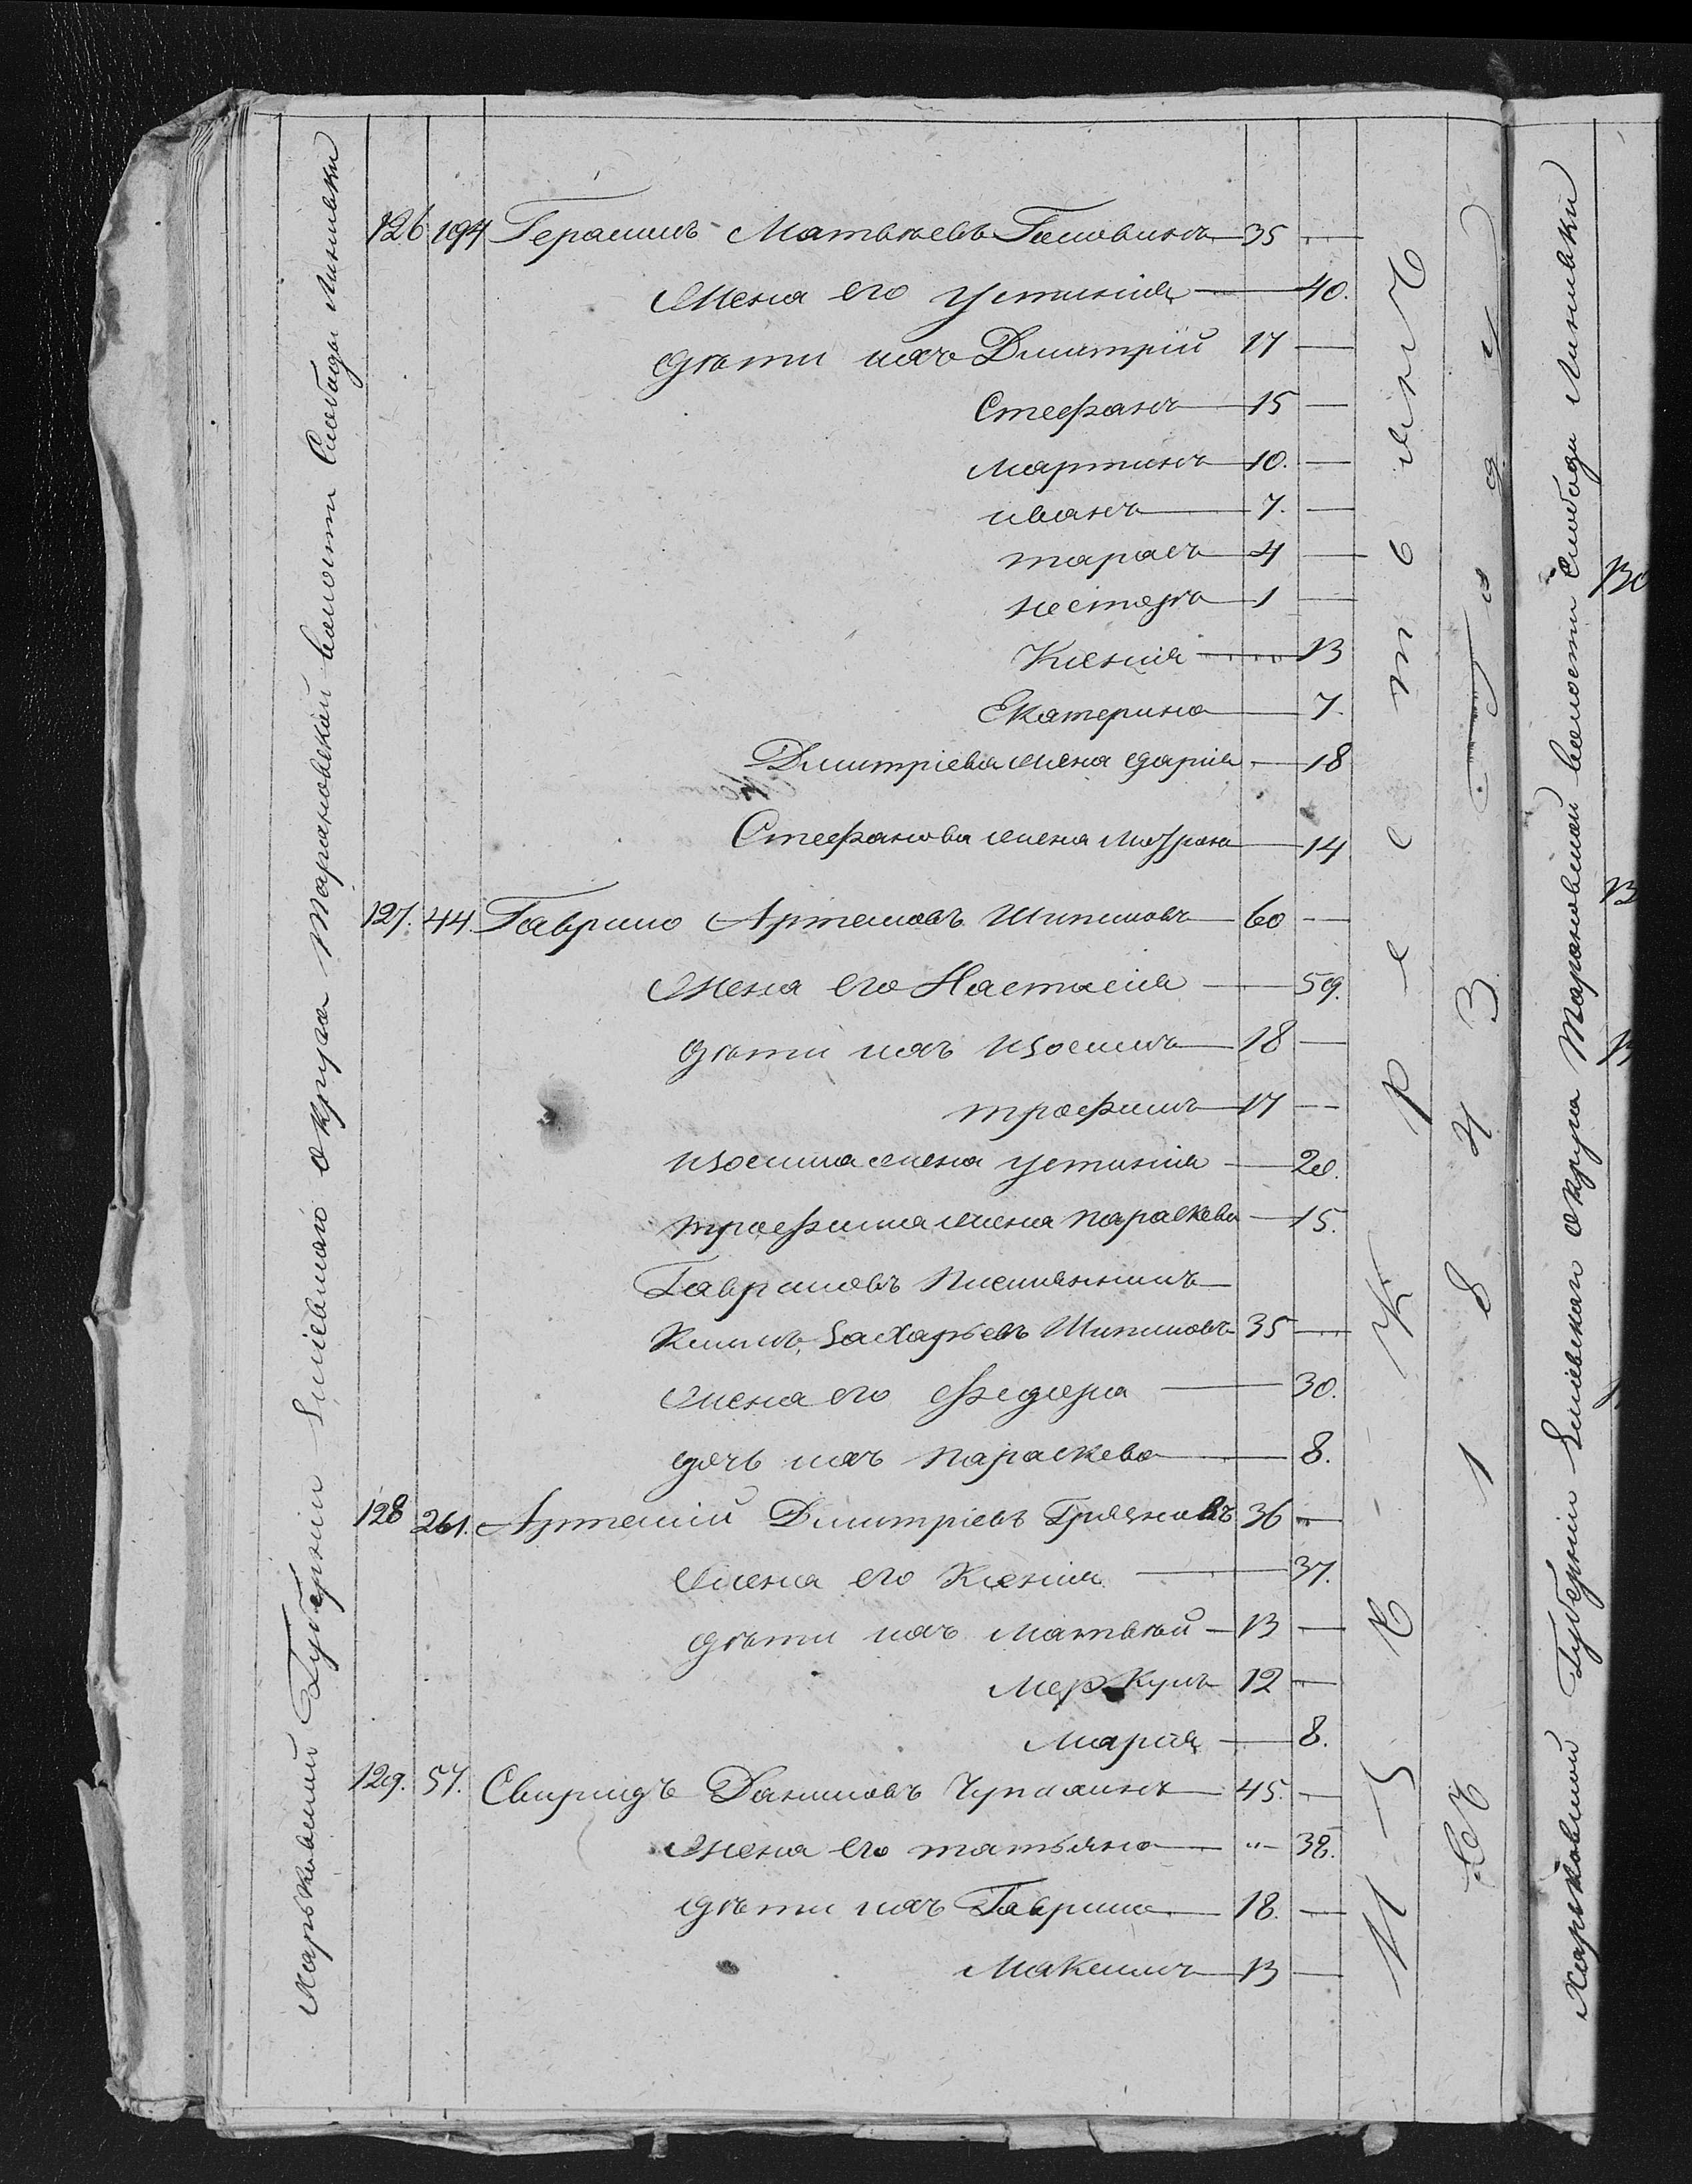 Харьковской Губерніи Зміевскаго округа Тарановской волости Слободы Лиманки
126 194 Герасимъ Матвѣевъ Головинъ 35
жена его Устинія 40.
дѣти ихъ Дмитрій 17
Стефанъ 15
Мартинъ 10.
иванъ 7.
тарасъ 4
нестеръ 1
Ксенія 13
Екатерина 7.
Дмитріева жена дарія 18
Стефанова жена 14
127. 44. Гаврило Артемовъ Шипиловъ 60
жена его Настасія 59.
дѣти ихъ изосимъ 18
трофимъ 17
изосима жена устинія 20.
трофима жена параскева 15.
Гавриловъ племянникъ
Климъ Захарьевъ Шипиловъ 35
жена его федора 30.
дочь ихъ параскева 8.
128 261. Артемій Дмитріевъ Грязновъ 36
жена его Ксенія 37.
дѣти ихъ матвѣй 13
меркулъ 12
марія 8.
129. 57. Свиридъ Даниловъ 45.
жена его татьяна " 38.
дѣти ихъ Гаврило 18.
Максимъ 13
Изъ крестьянъ
Съ 1843 года
Харьковской Губерніи Зміевскаго округа Тарановской волости Слободы Лиманки